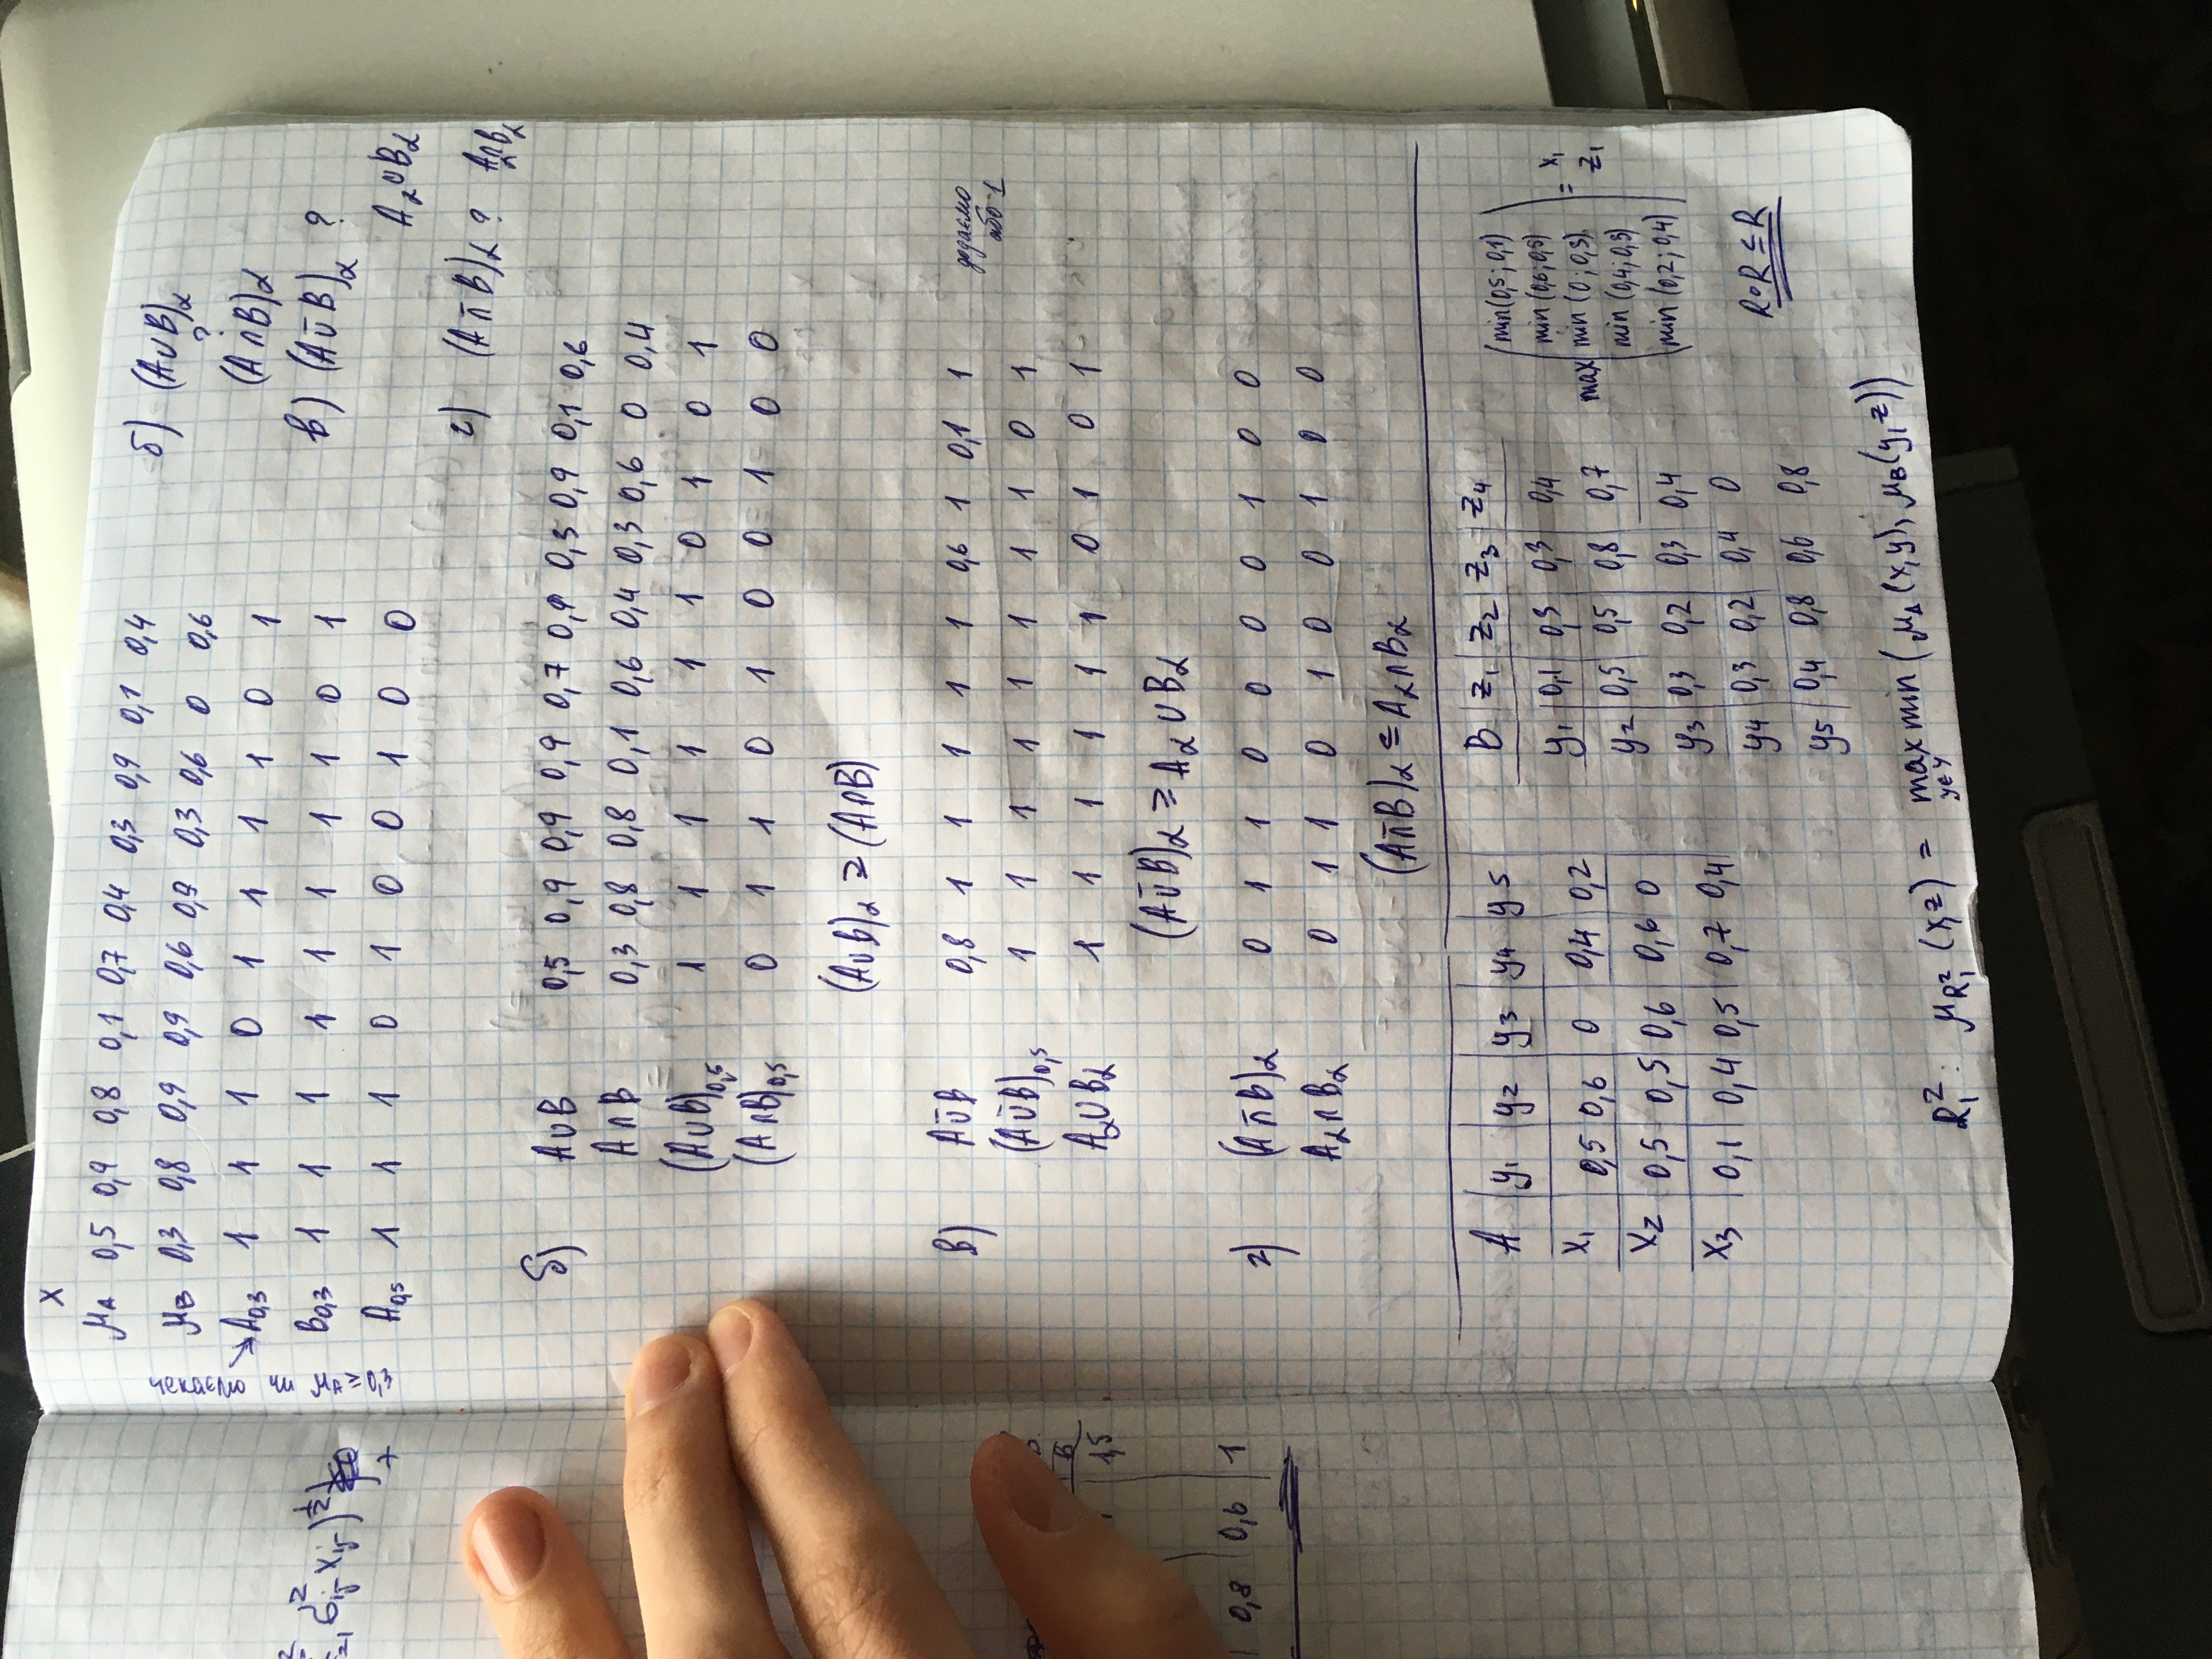 X
μA 0,5 0,9 0,8 0,1 0,7 0,4 0,3 0,9 0,1 0,4
μB 0,3 0,8 0,9 0,9 0,6 0,9 0,3 0,6 0 0,6
A0,3 1 1 1 0 1 1 1 1 0 1
B0,3 1 1 1 1 1 1 1 1 0 1
A0,5 1 1 1 0 1 0 0 1 0 0
б) (A∪B)α
?
(A∩B)α
в) (A∪̄B)α ?
Aα∪Bα
г) (A∩̄B)α ? Aα∩Bα
б) A∪B 0,5 0,9 0,9 0,9 0,7 0,9 0,3 0,9 0,1 0,6
A∩B 0,3 0,8 0,8 0,1 0,6 0,4 0,3 0,6 0 0,4
(A∪B)0,5 1 1 1 1 1 1 0 1 0 1
(A∩B)0,5 0 1 1 0 1 0 0 1 0 0
(A∪B)α ⊇ (A∩B)
в) A∪̄B 0,8 1 1 1 1 1 0,6 1 0,1 1
додаємо
або 1
(A∪̄B)0,5 1 1 1 1 1 1 1 1 0 1
Aα∪Bα 1 1 1 1 1 1 0 1 0 1
(A∪̄B)α ⊇ Aα∪Bα
г) (A∩̄B)α 0 1 1 0 0 0 0 1 0 0
Aα∩Bα 0 1 1 0 1 0 0 1 0 0
(A∩̄B)α ⊆ Aα∩Bα
A y1 y2 y3 y4 y5
x1 0,5 0,6 0 0,4 0,2
x2 0,5 0,5 0,6 0,6 0
x3 0,1 0,4 0,5 0,7 0,4
B z1 z2 z3 z4
y1 0,1 0,3 0,3 0,4
y2 0,5 0,5 0,8 0,7
y3 0,3 0,2 0,3 0,4
y4 0,3 0,2 0,4 0
y5 0,4 0,8 0,6 0,8
max
min(0,5; 0,1)
min (0,6; 0,5)
min (0; 0,3)
min (0,4; 0,3)
min (0,2; 0,4)
= x1
z1
R∘R ⊆ R
R1²: μR1² (x,z) = max min (μA(x,y), μB(y,z))
y∈Y
0,8 0,6 1
1,5
B